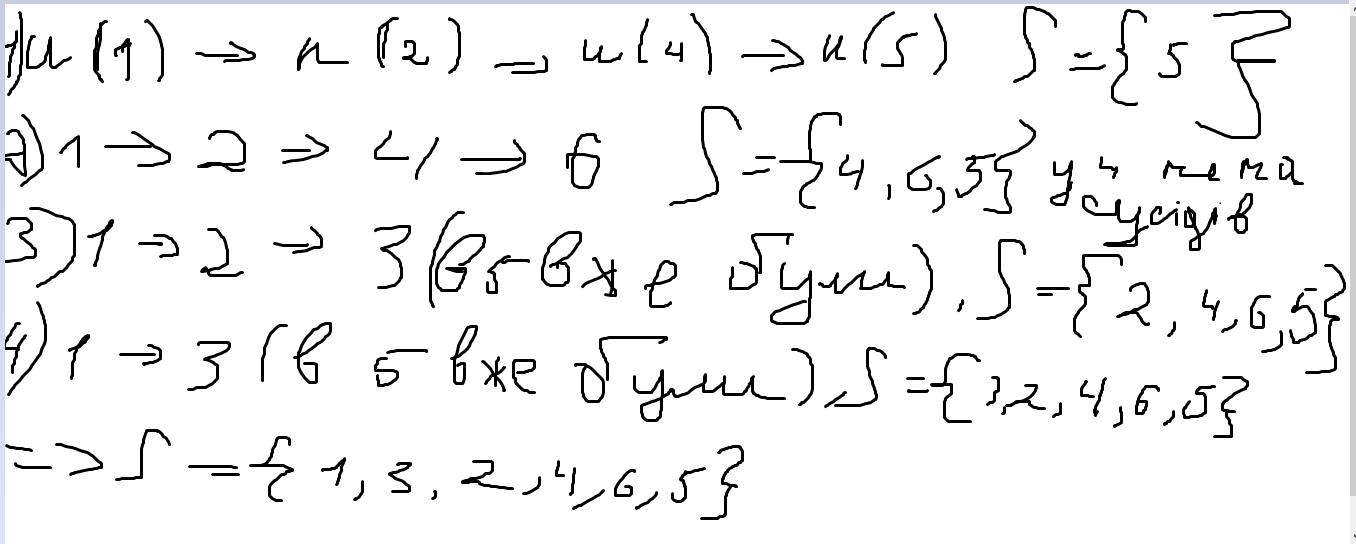 1) u(1) → n(2) → u(4) → u(5) S = {5}
2) 1 → 2 → 4 → 6 S = {4, 6, 5} у 4 нема сусідів
3) 1 → 2 → 3 (в 5 вже були), S = {2, 4, 6, 5}
4) 1 → 3 (в 5 вже були), S = {3, 2, 4, 6, 5}
=> S = {1, 3, 2, 4, 6, 5}